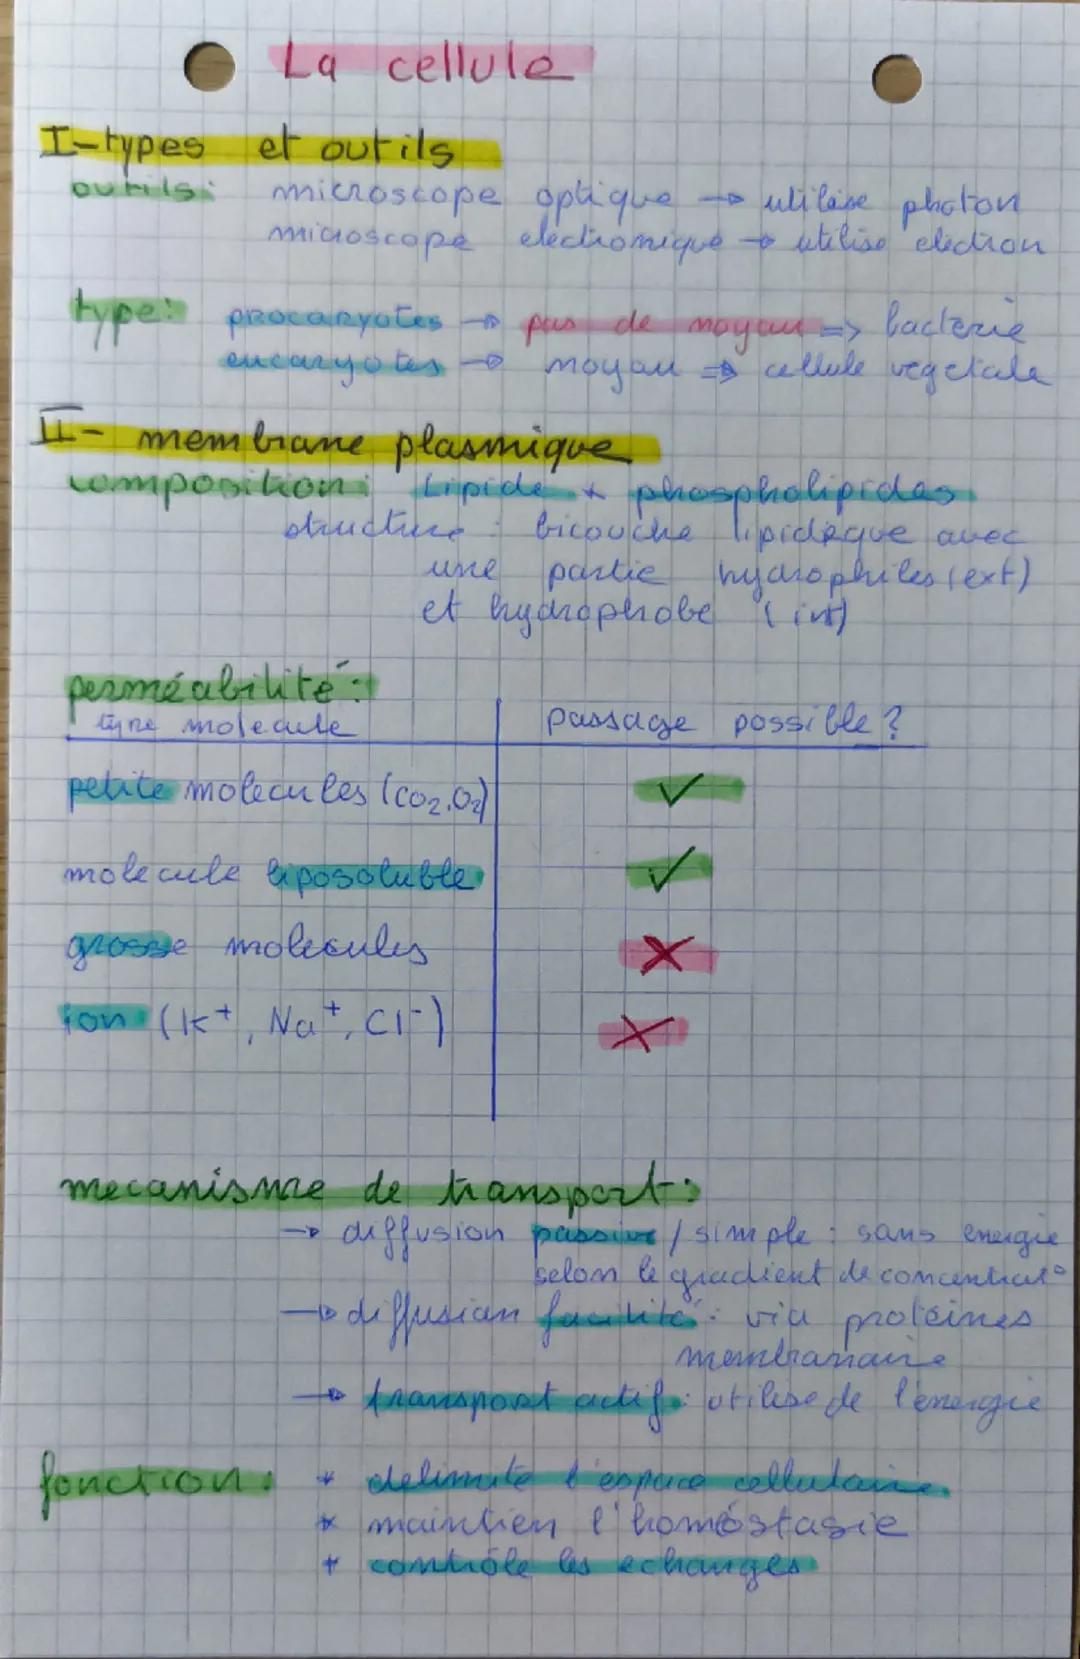 La cellule
I-types et outils
outils: microscope optique → utilise photon
microscope electronique → utilise electron
type: procaryotes → pas de noyau => bacterie
eucaryotes → noyau => cellule vegetale
II- membrane plasmique
composition: Lipide + phospholipides
structure : bicouche lipidique avec
une partie hydrophiles (ext)
et hydrophobe (int)
perméabilité:
type molecule passage possible?
petite molecules (CO2, O2) ✓
molecule liposoluble ✓
grosse molecules X
ion (K+, Na+, Cl-) X
mecanisme de transport:
→ diffusion passive / simple : sans energie
selon le gradient de concentrat°
→ diffusion facilité : via proteines
membranaire
→ transport actif : utilise de l'énergie
fonction: * delimite l'espace cellulaire
* maintien l'homéostasie
* contrôle les echanges